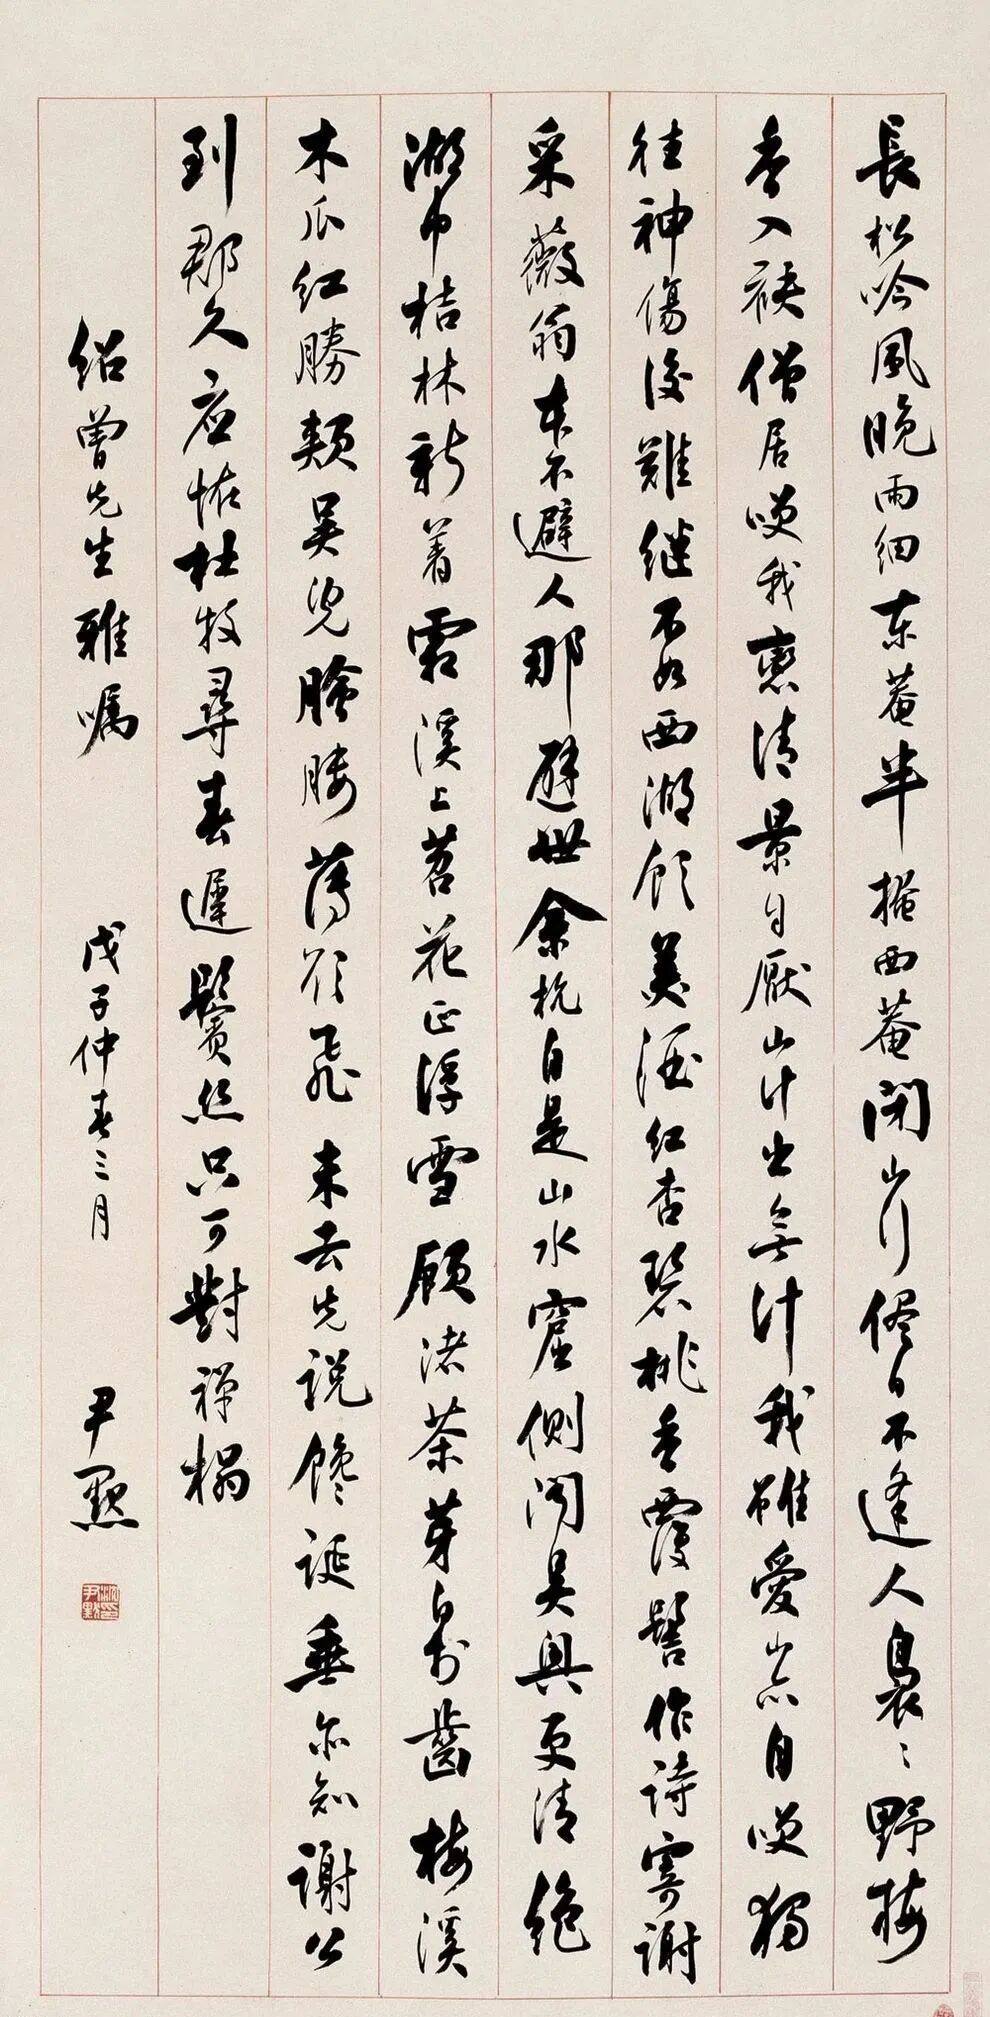 長松吟風晚雨細東菴半掩西菴閉山行侭日不逢人裊〻野梅
香入袂僧居笑我戀清景自厭山計出無計我雖愛山亦自笑獨
往神傷後難继不如西湖飲美酒紅杏碧桃香覆髻作詩寄謝
采薇翁本不避人那避世余杭自是山水窟側聞吴興更清絶
湖中桔林新着霜溪上苕花正浮雪顧渚茶芽白於齒梅溪
木瓜紅勝頰吴兒膾腰薄欲飛未去先説馋涎垂亦知謝公
到郡久应怪杜牧尋春遲鬢丝只可對禅榻
绍曾先生雅嘱 戊子仲春三月 尹默
沈尹默印